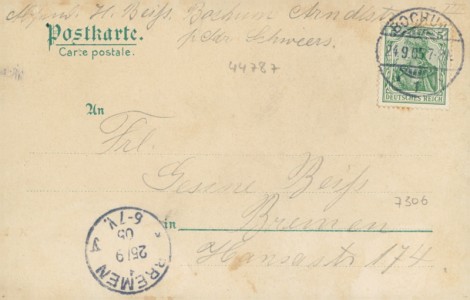 H. Beiß. Bochum Arndtstr.
Postkarte.
p. Adr. Schweers.
Carte postale.
BOCHUM
4.9.05.7
DEUTSCHES REICH
44787
An
Frl.
Gesine Beiß
7306
in Bremen
Hansastr 174
BREMEN
4
25/9
05
6-7V.